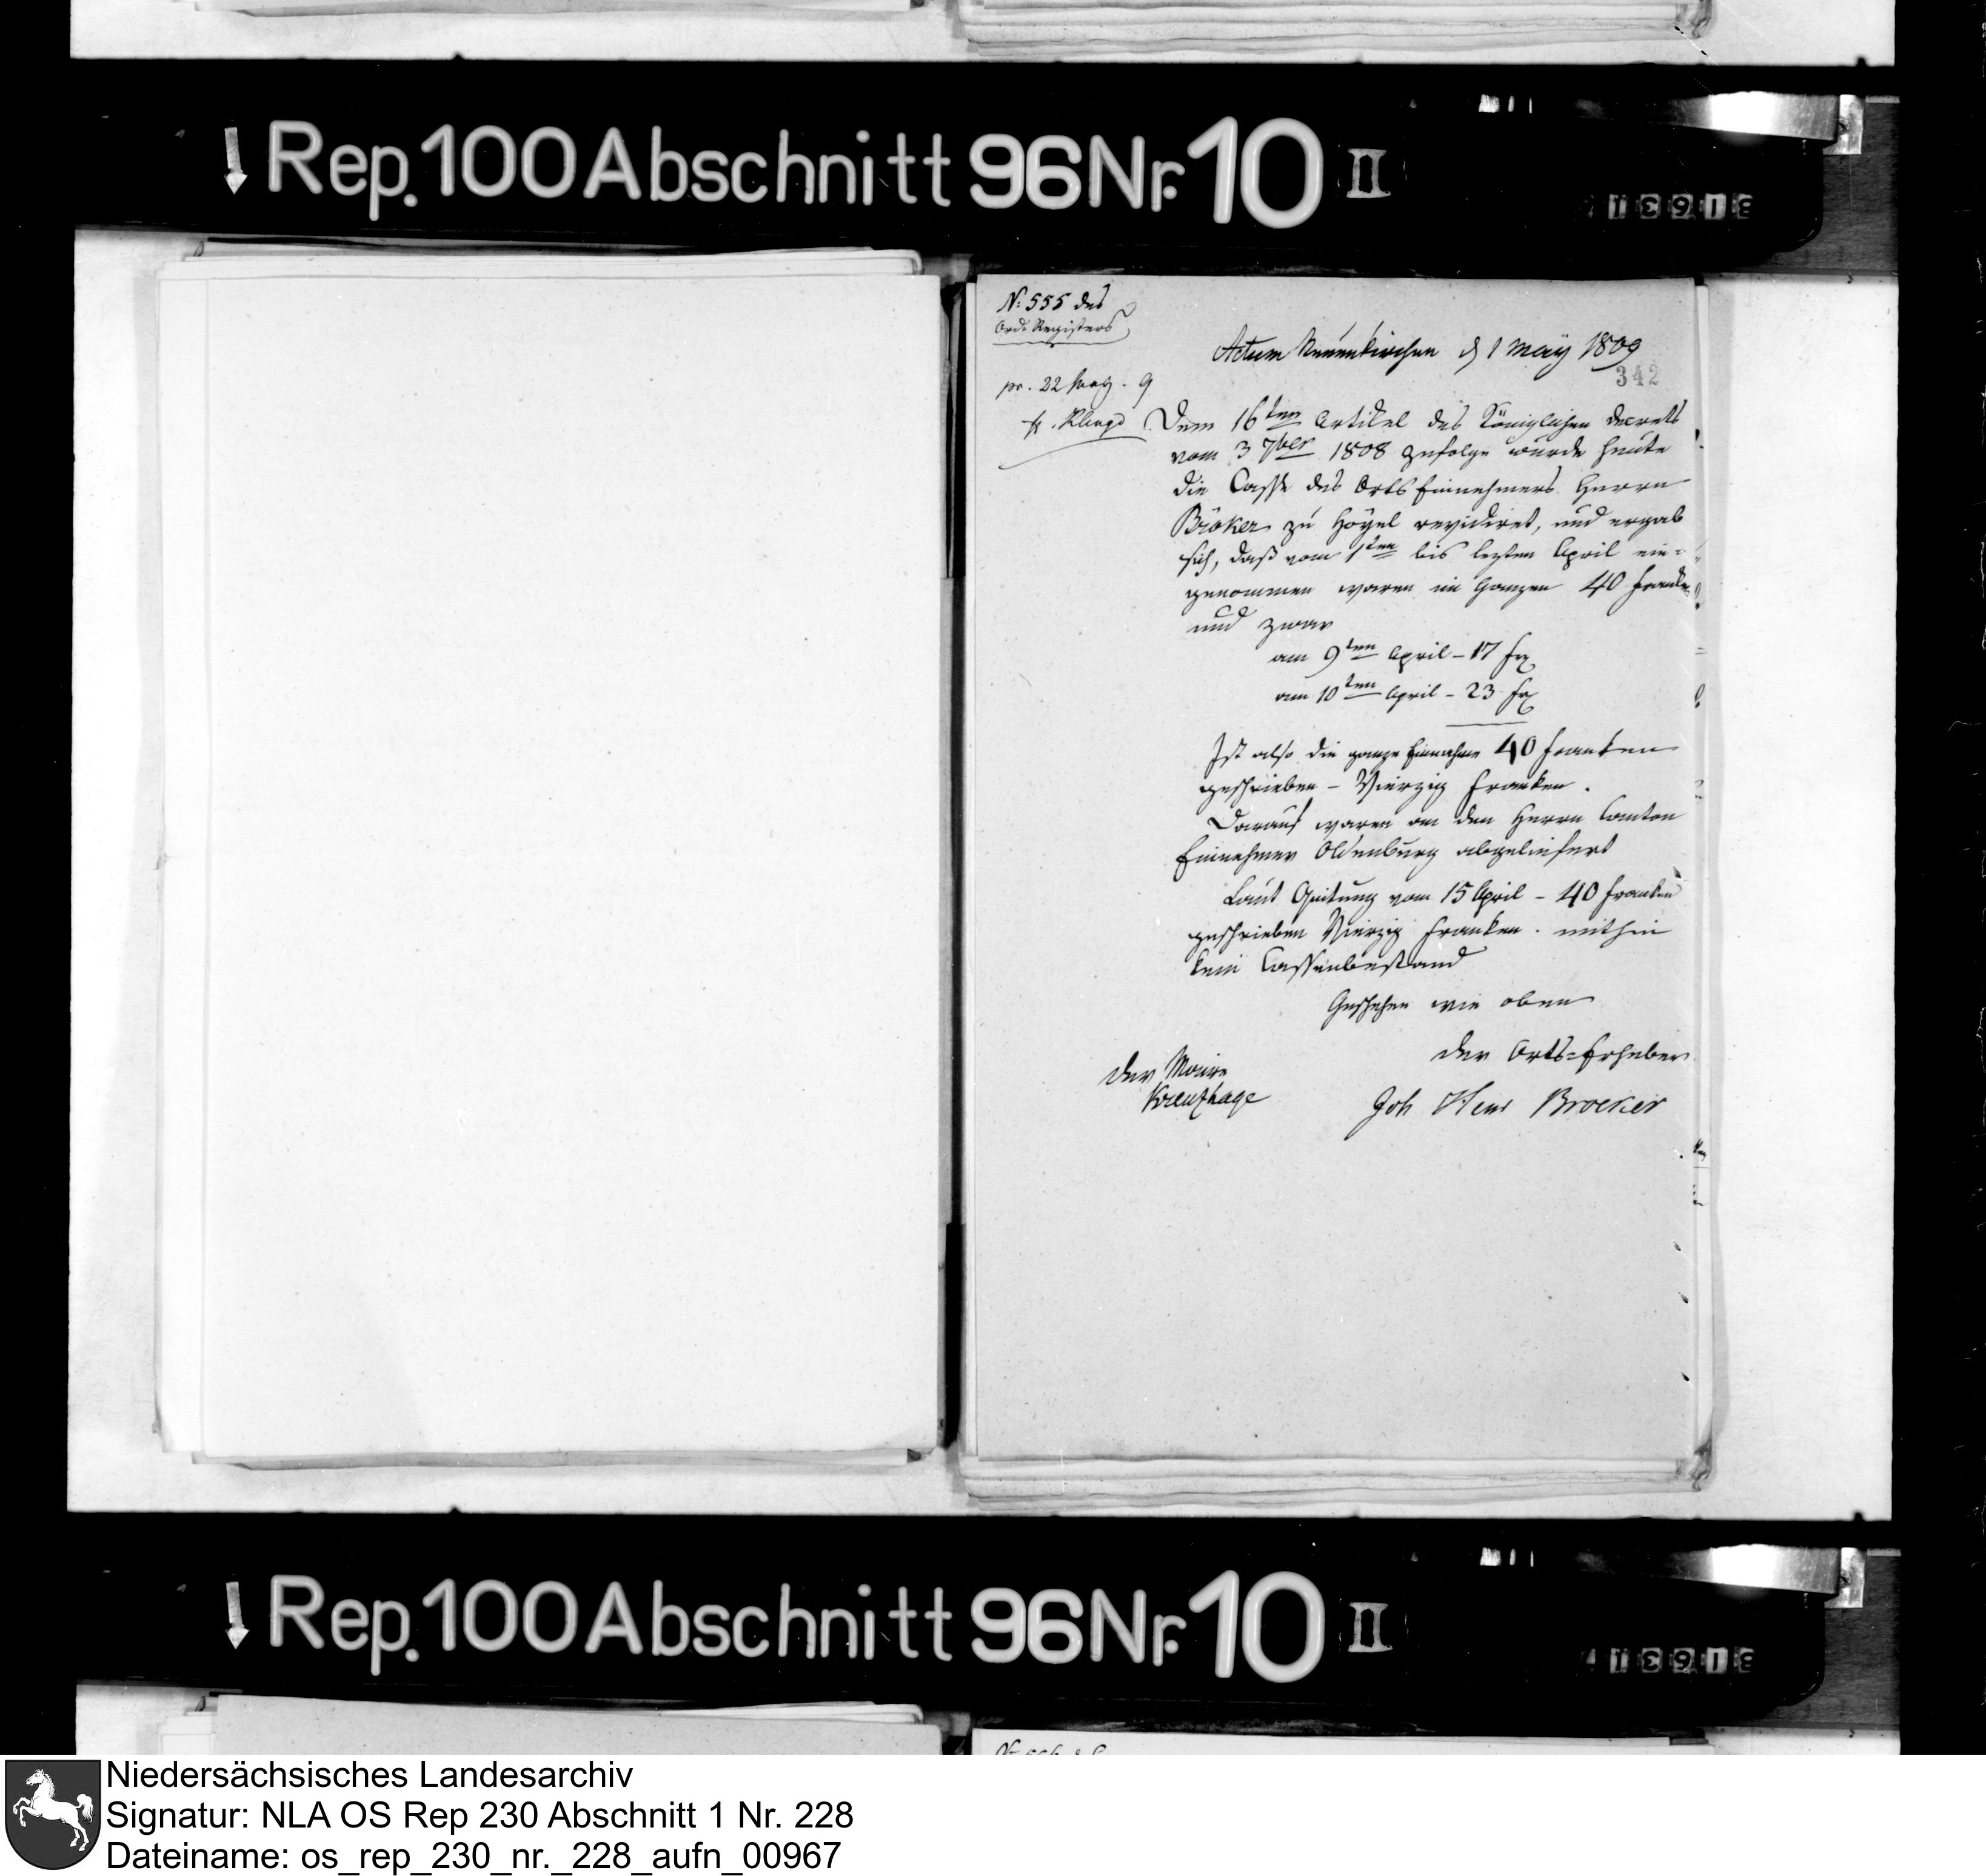 Rep. 100 Abschnitt 96 Nr. 10 II
N: 555 des
Ord: Registers
pr. 22 May. 9
Actum Neuenkirchen d 1 May 1809
342
Dem 16ten Artikel des Königlichen Decrets
vom 3 7ber 1808 zufolge wurde heute
die Casse des Orts Einnehmers Herrn
Bröker zu Hoyel revidiret, und ergab
sich, daß vom 1ten bis lezten April ein=
genommen waren im Ganzen 40 Franken
und zwar
am 9ten April – 17 Fr
am 10ten April – 23 Fr
Ist also die ganze Einnahme 40 Franken
geschrieben – Vierzig Franken.
Darauf waren an den Herrn Canton
Einnehmer Oldenburg abgeliefert
Laut Quitung vom 15 April – 40 Franken
geschrieben Vierzig Franken. mithin
kein Cassenbestand
Geschehen wie oben
Der Orts=Erheber
Joh Henr Broeker
Der Maire
Kreuzhage
Rep. 100 Abschnitt 96 Nr. 10 II
Niedersächsisches Landesarchiv
Signatur: NLA OS Rep 230 Abschnitt 1 Nr. 228
Dateiname: os_rep_230_nr._228_aufn_00967